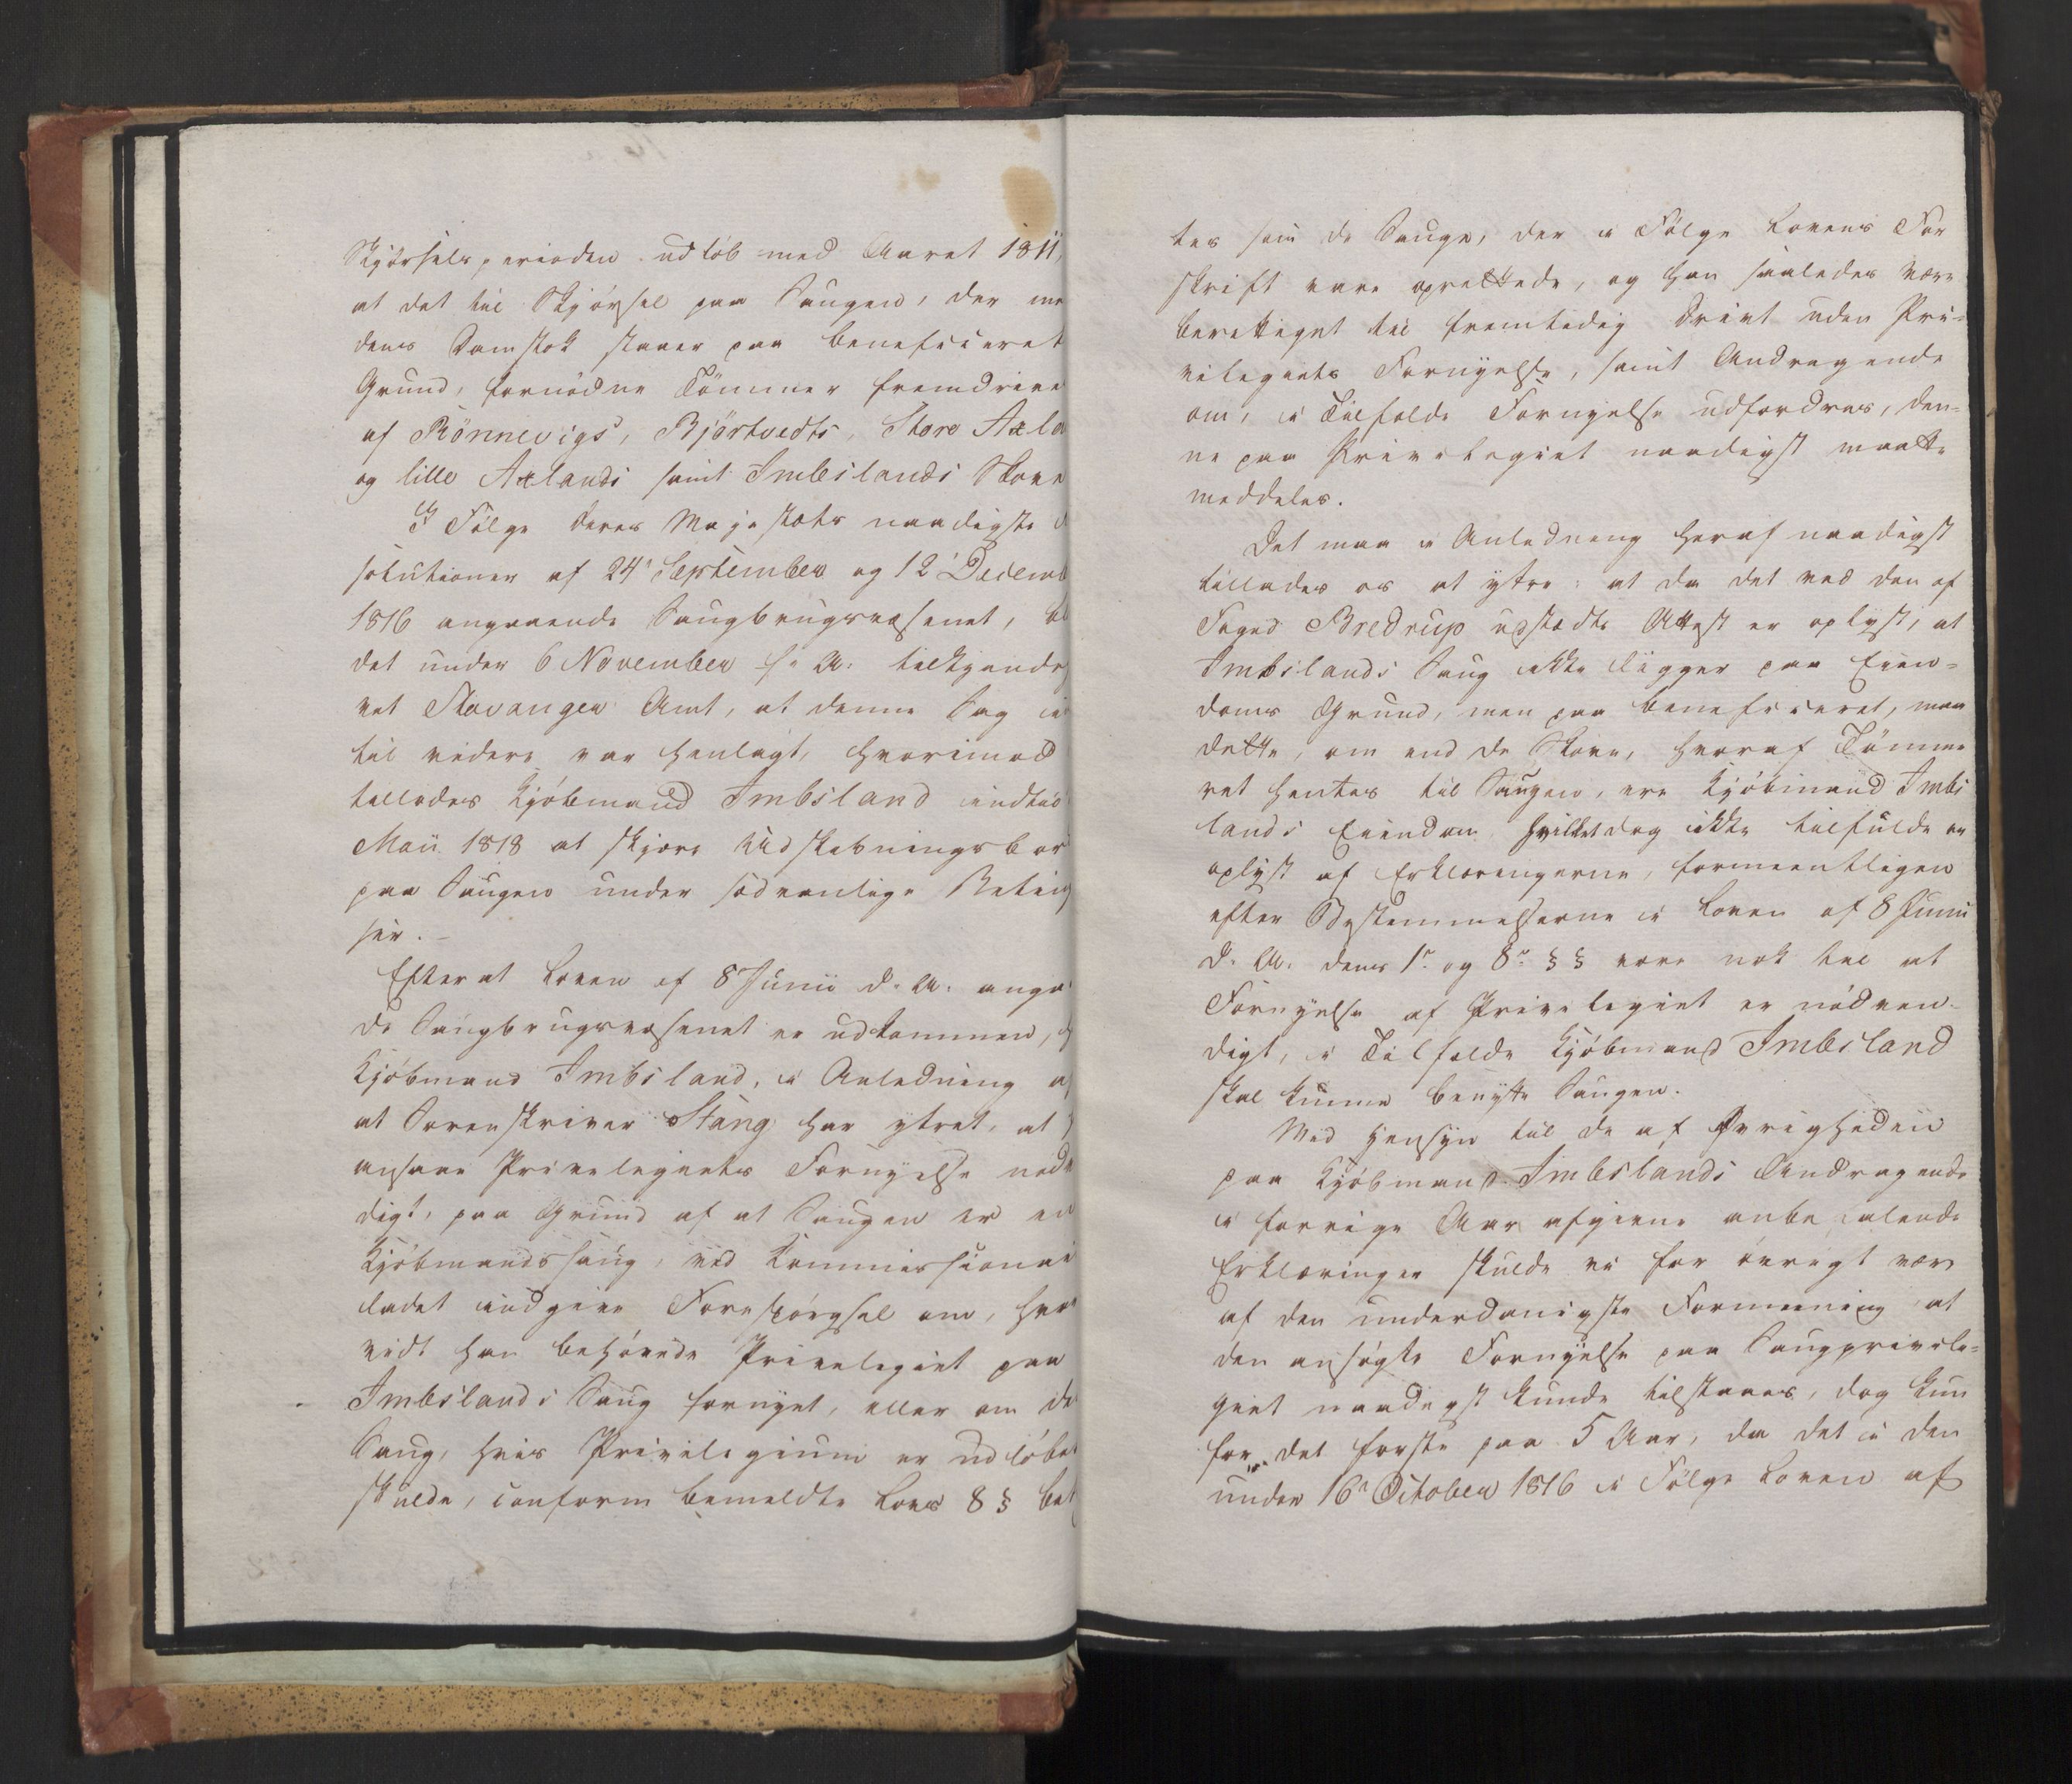 Skjörselsperioden udlöb med Aaret 1811,
at det til Skjörsel paa Saugen, der me
dens Damstok staaer paa beneficeret
Grund, fornødne Tömmer fremdrives
af Rönnevigs, Björtvedts, Store Axla
og lille Axlands samt Imbslands Skove
I Fölge Deres Majestæts naadigste
solutioner af 24de September og 12 Decemb
1816 angaaende Saugbrugsvæsenet, bl
det under 6 November s. A. tilkjende
vet Stavanger Amt, at denne Sag in
til videre var henlagt, hvorimod
tillodes Kjöbmand Imbsland indtil
Maii 1818 at skjære Udskibningsbord
paa Saugen under sædvanlige Beting
ser. -
Efterat Loven af 8 Junii d. A. anga
de Saugbrugsvæsenet er udkommen, h
Kjöbmand Imbsland, i Anledning af
at Sorenskriver Stang har ytret, at
ansaae Privilegiets Fornyelse nødv
digt, paa Grund af at Saugen er en
Kjöbmandssaug, ved Commissionai
ladet indgive Forespörgsel om, hvor
vidt han behövede Privilegiet paa
Imbslands Saug fornyet, eller om de
Saug, hvis Privilegium er udlöbet
skulde, conform bemeldte Lovs 8 § bet
tes som de Sauge, der i Fölge Lovens For
skrift vare oprettede, og han saaledes være
berettiget til fremtidig Drivt uden Pri-
vilegiets Fornyelse, samt Andragende
om, i Tilfælde Fornyelse udfordres, den-
ne paa Privilegiet naadigst maatte
meddeles.
Det maa i Anledning heraf naadigst
tillades os at ytre: at da det ved den af
Foged Bredrup udstædte Attest er oplyst, at
Imbslands Saug ikke ligger paa Eien-
doms Grund, men paa beneficeret, maa
dette, om end de Skove, hvoraf Tömme
ret hentes til Saugen, ere Kjöbmand Imbs
lands Eiendom, hvilket dog ikke tilfulde er
oplyst af Erklæringerne, formeentligen
efter Bestemmelserne i Loven af 8 Junii
d. A. dens 1ste og 8de §§ være nok til at
Fornyelse af Privilegiet er nödven-
digt, i Tilfælde Kjöbmand Imbsland
skal kunne benytte Saugen.
Med Hensyn til de af Øvrigheden
paa Kjöbmand Imbslands Andragende
i forrige Aar afgivne anbefalende
Erklæringer skulde vi for övrigt være
af den underdanigste Formeening at
den ansögte Fornyelse paa Saugprivile-
giet naadigst kunde tilstaaes, dog kun
for det förste paa 5 Aar, da det i den
under 16de October 1816 i Fölge Loven af